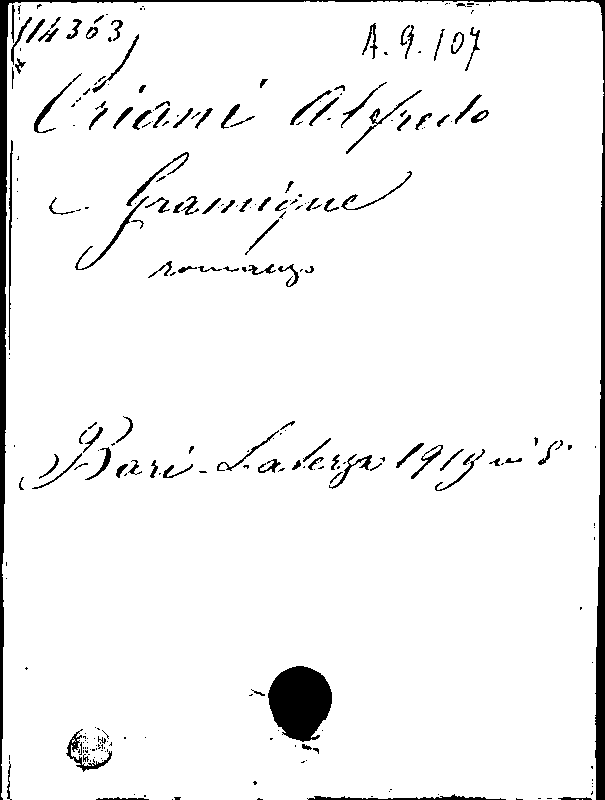 114363
A.9.107
Oriani Alfredo
Gramigne
romanzo
Bari - Laterza 1919 in 8°